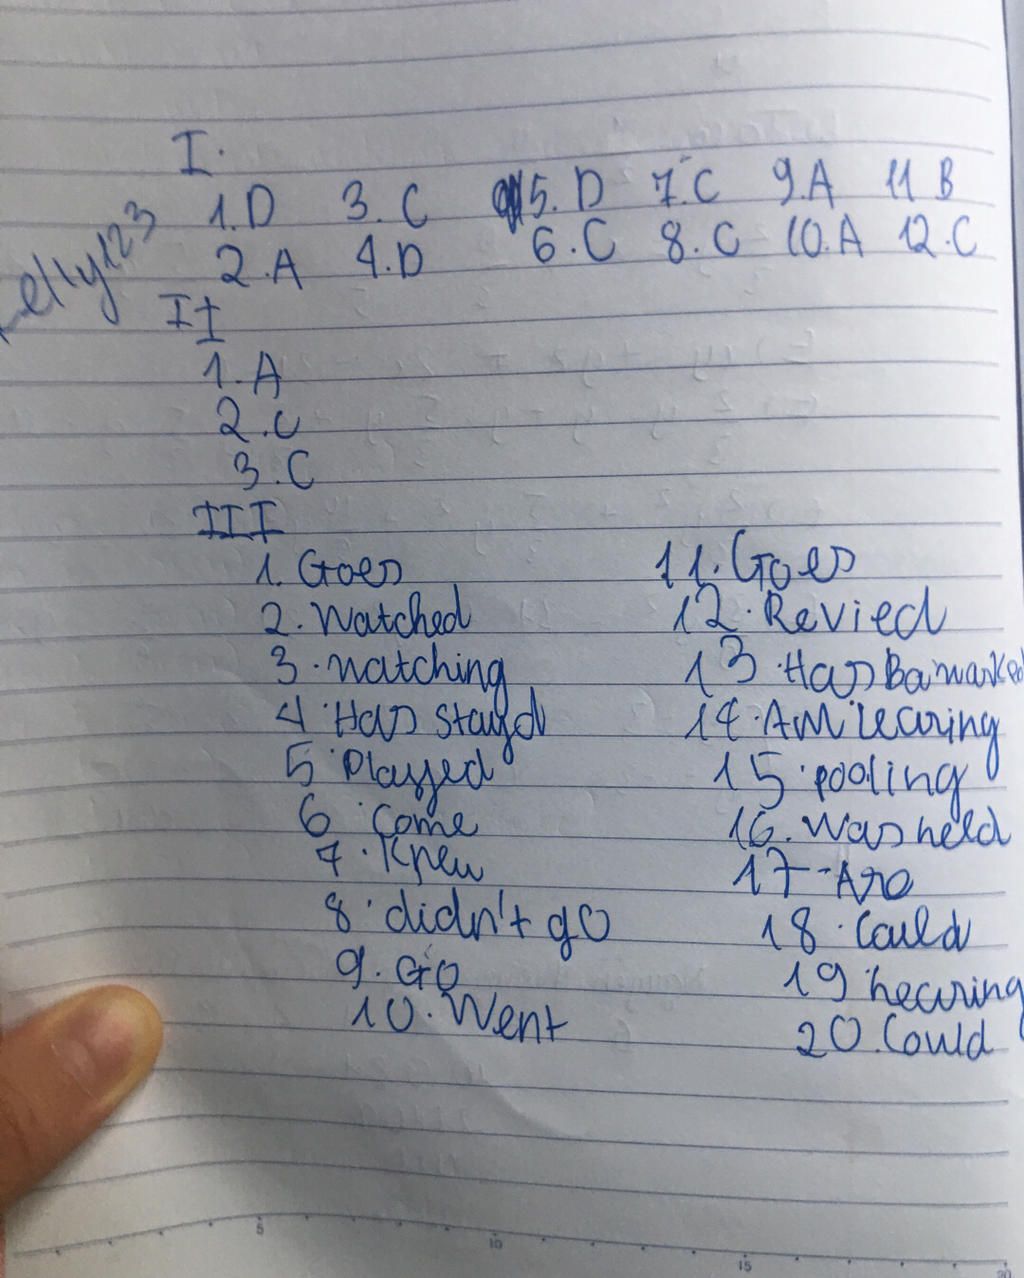 I.
1.D 3.C 5.D 7.C 9.A 11 B
2.A 4.D 6.C 8.C 10.A 12.C
elly123
II
1.A
2.C
3.C
III
1. Goes
2. Watched
3. watching
4 Has stayd
5 Played
6 Come
7. Knew
8. didn't go
9. Go
10. Went
11. Goes
12. Revied
13. Has
14. Am
15. pooling
16. Was held
17- Are
18. Could
19 hearing
20. Could
5 10 15 20